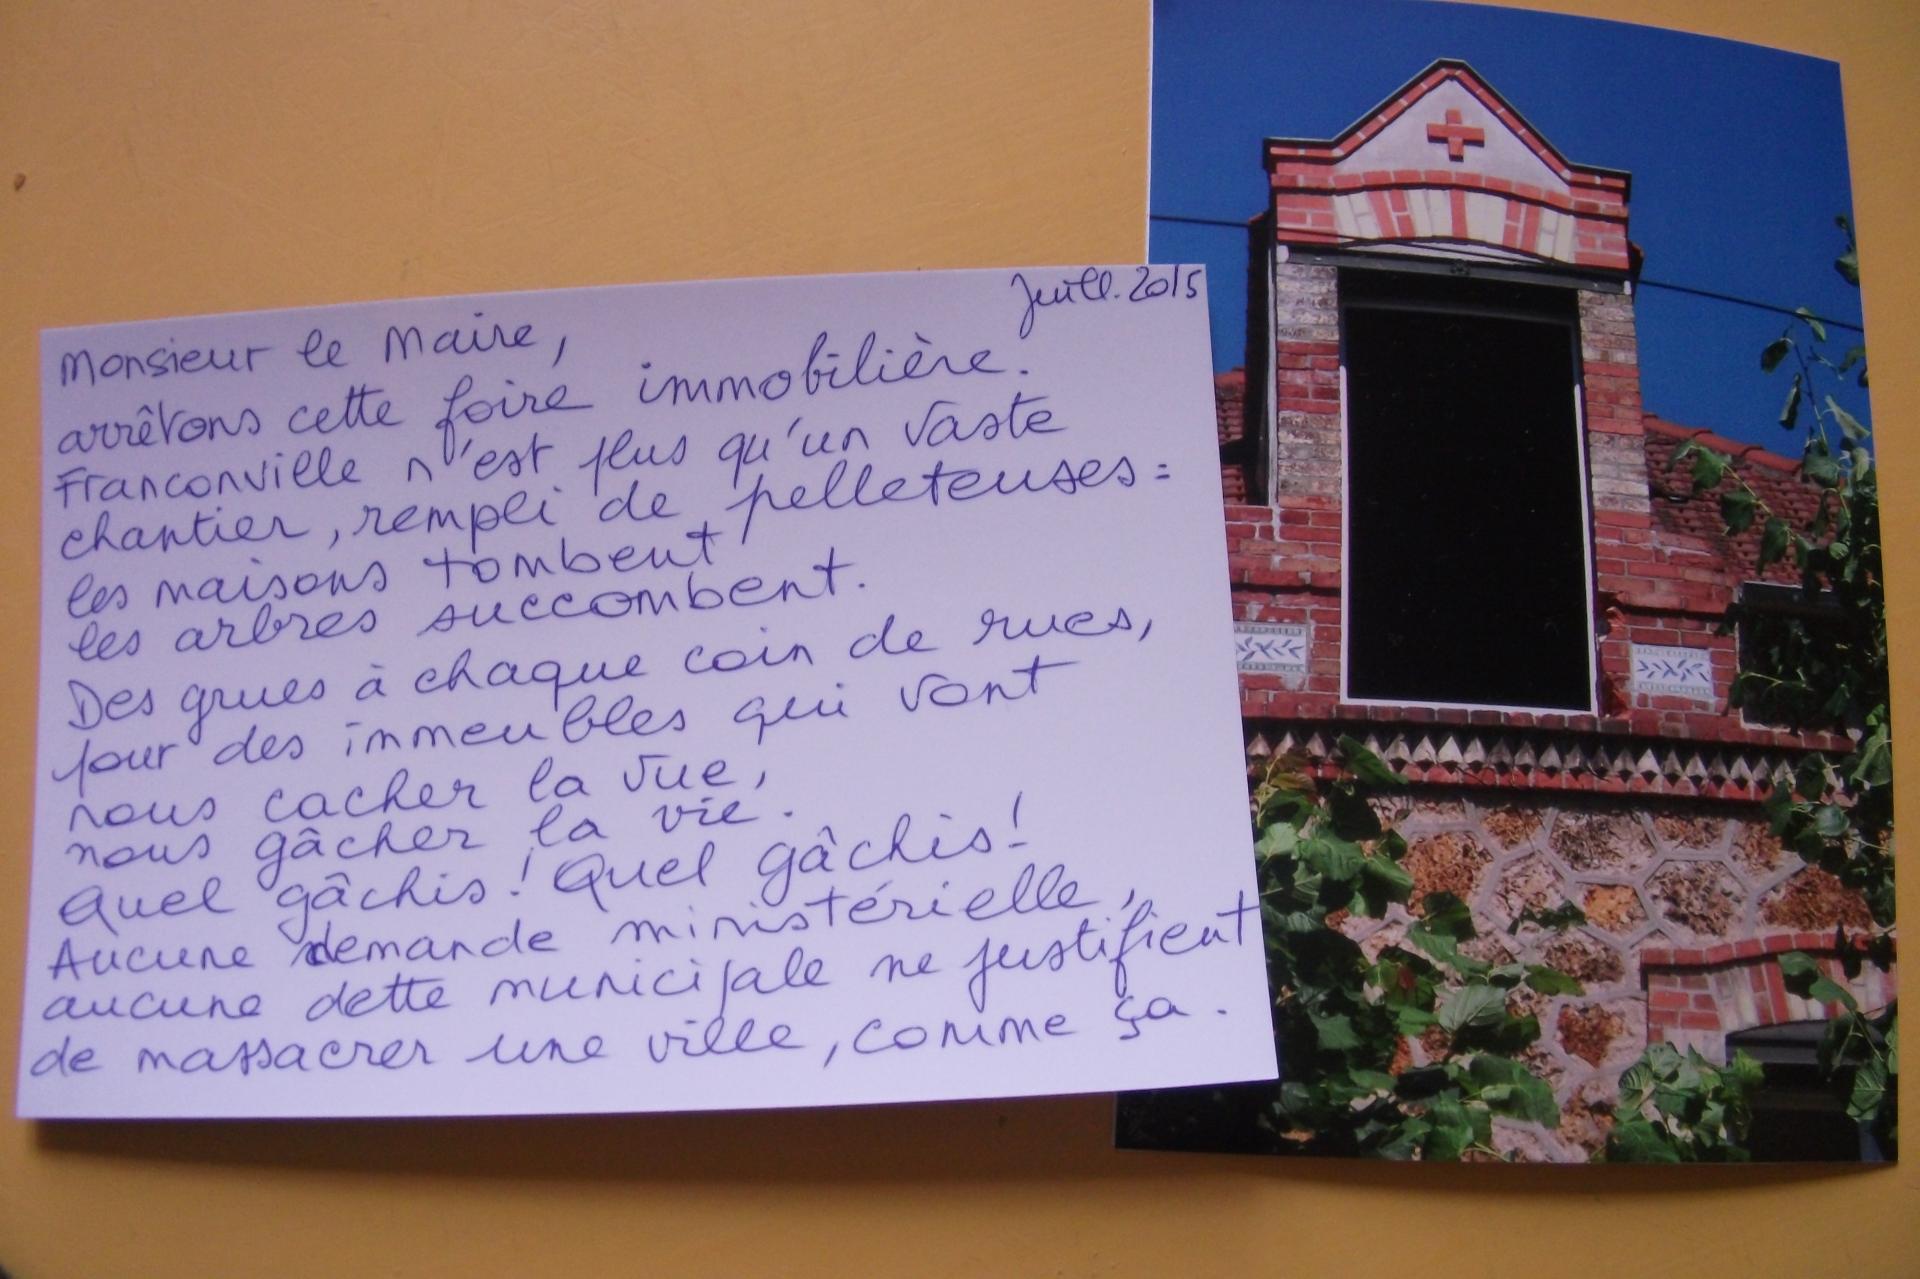 Juill. 2015
Monsieur le Maire,
arrêtons cette foire immobilière.
Franconville n'est plus qu'un vaste
chantier, rempli de pelleteuses :
les maisons tombent
les arbres succombent.
Des grues à chaque coin de rues,
pour des immeubles qui vont
nous cacher la vue,
nous gâcher la vie.
Quel gâchis ! Quel gâchis !
Aucune demande ministérielle,
aucune dette municipale ne justifient
de massacrer une ville, comme ça.